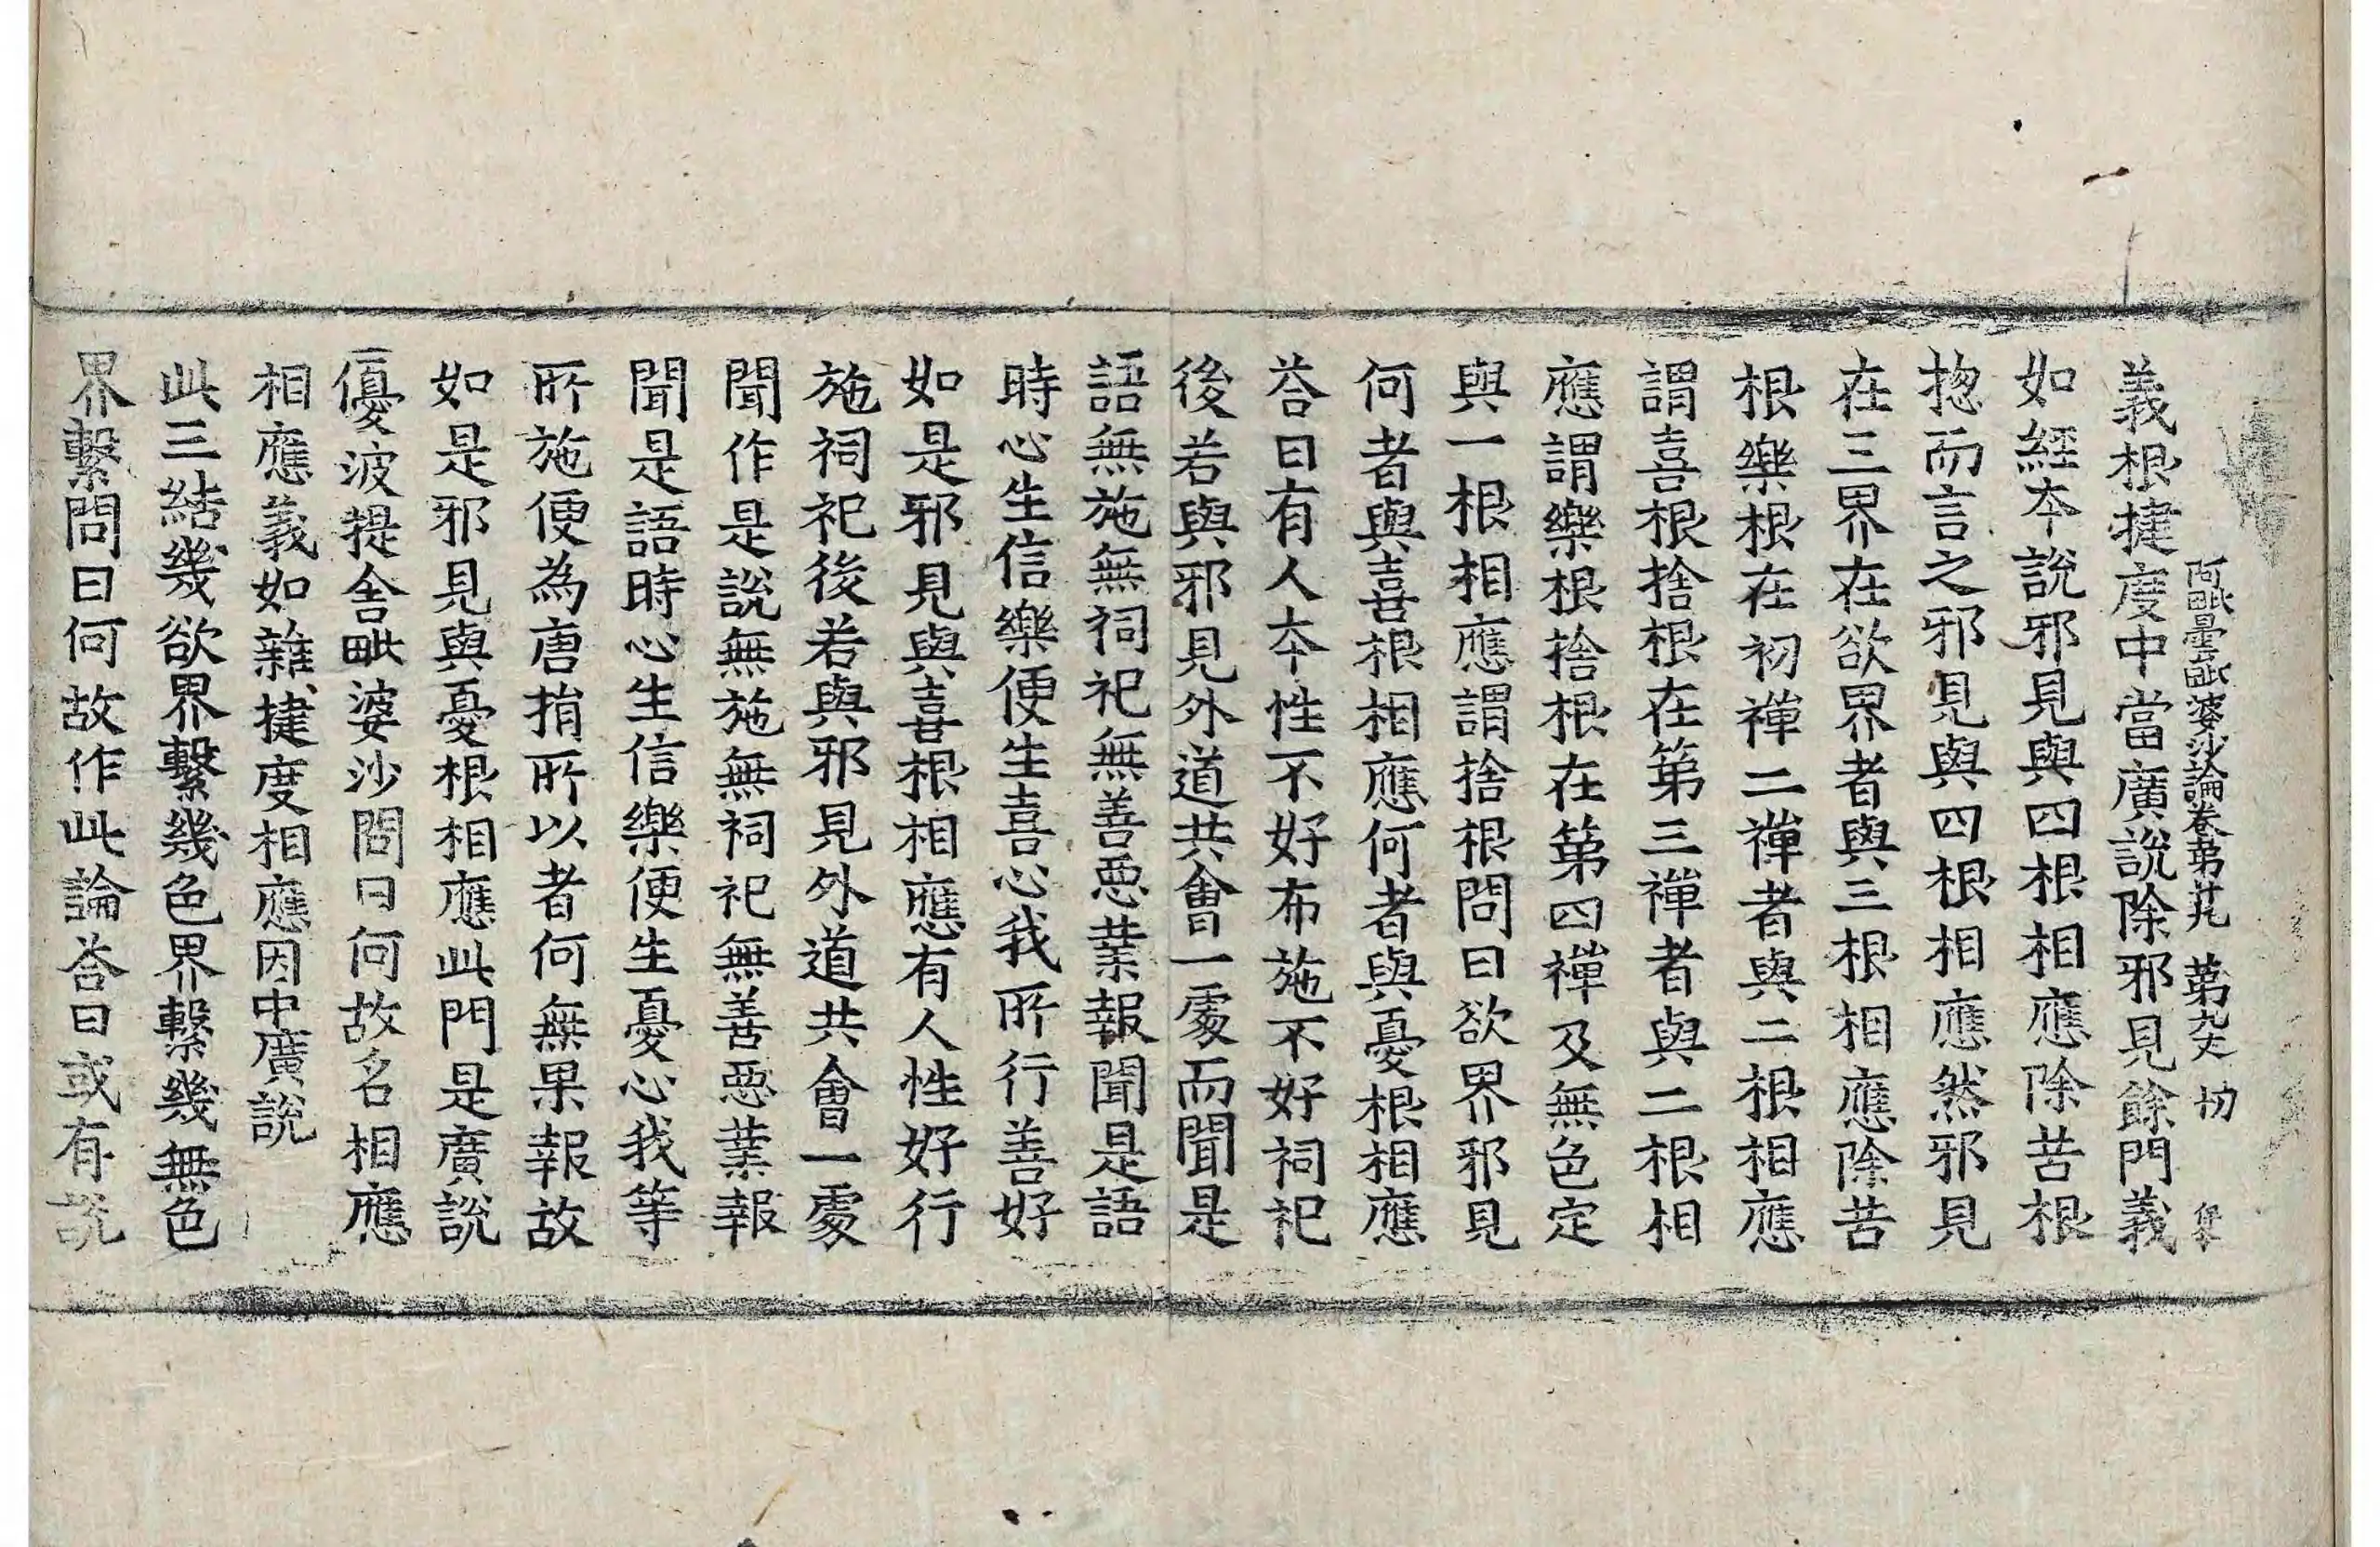 阿毗曇毗婆沙論卷第廿九 第九丈 切
義根揵度中當廣說除邪見餘門義
如經本說邪見與四根相應除苦根
揔而言之邪見與四根相應然邪見
在三界在欲界者與三根相應除苦
根樂根在初禪二禪者與二根相應
謂喜根捨根在第三禪者與二根相
應謂樂根捨根在第四禪及無色定
與一根相應謂捨根問曰欲界邪見
何者與喜根相應何者與憂根相應
荅曰有人本性不好布施不好祠祀
後若與邪見外道共會一處而聞是
語無施無祠祀無善惡業報聞是語
時心生信樂便生喜心我所行善好
如是邪見與喜根相應有人性好行
施祠祀後若與邪見外道共會一處
聞作是說無施無祠祀無善惡業報
聞是語時心生信樂便生憂心我等
所施便為唐捐所以者何無果報故
如是邪見與憂根相應此門是廣說
優波提舍毗婆沙問曰何故名相應
相應義如雜揵度相應因中廣說
此三結幾欲界繫幾色界繫幾無色
界繫問曰何故作此論荅曰或有說